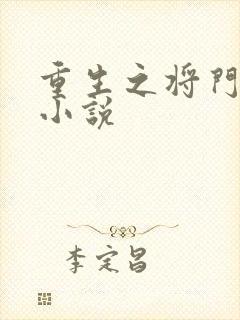 重生之将門
小説
李定昌